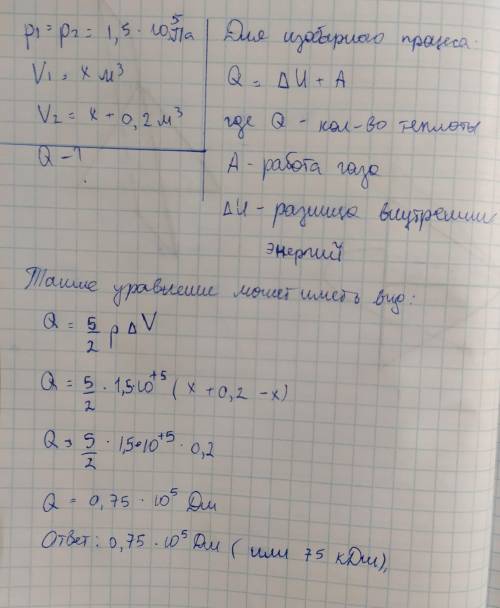 p₁ = p₂ = 1,5 · 10⁵ Па
V₁ = x м³
V₂ = x + 0,2 м³
Q - ?
Для изобарного процеса.
Q = ΔU + A
где Q - кол-во теплоты
A - работа газа
ΔU - разница внутренних
энергий
Также уравнение может иметь вид:
Q = 5/2 p Δ V
Q = 5/2 · 1,5·10⁺⁵ ( x + 0,2 - x)
Q = 5/2 · 1,5·10⁺⁵ · 0,2
Q = 0,75 · 10⁵ Дж
Ответ: 0,75 · 10⁵ Дж ( или 75 кДж),